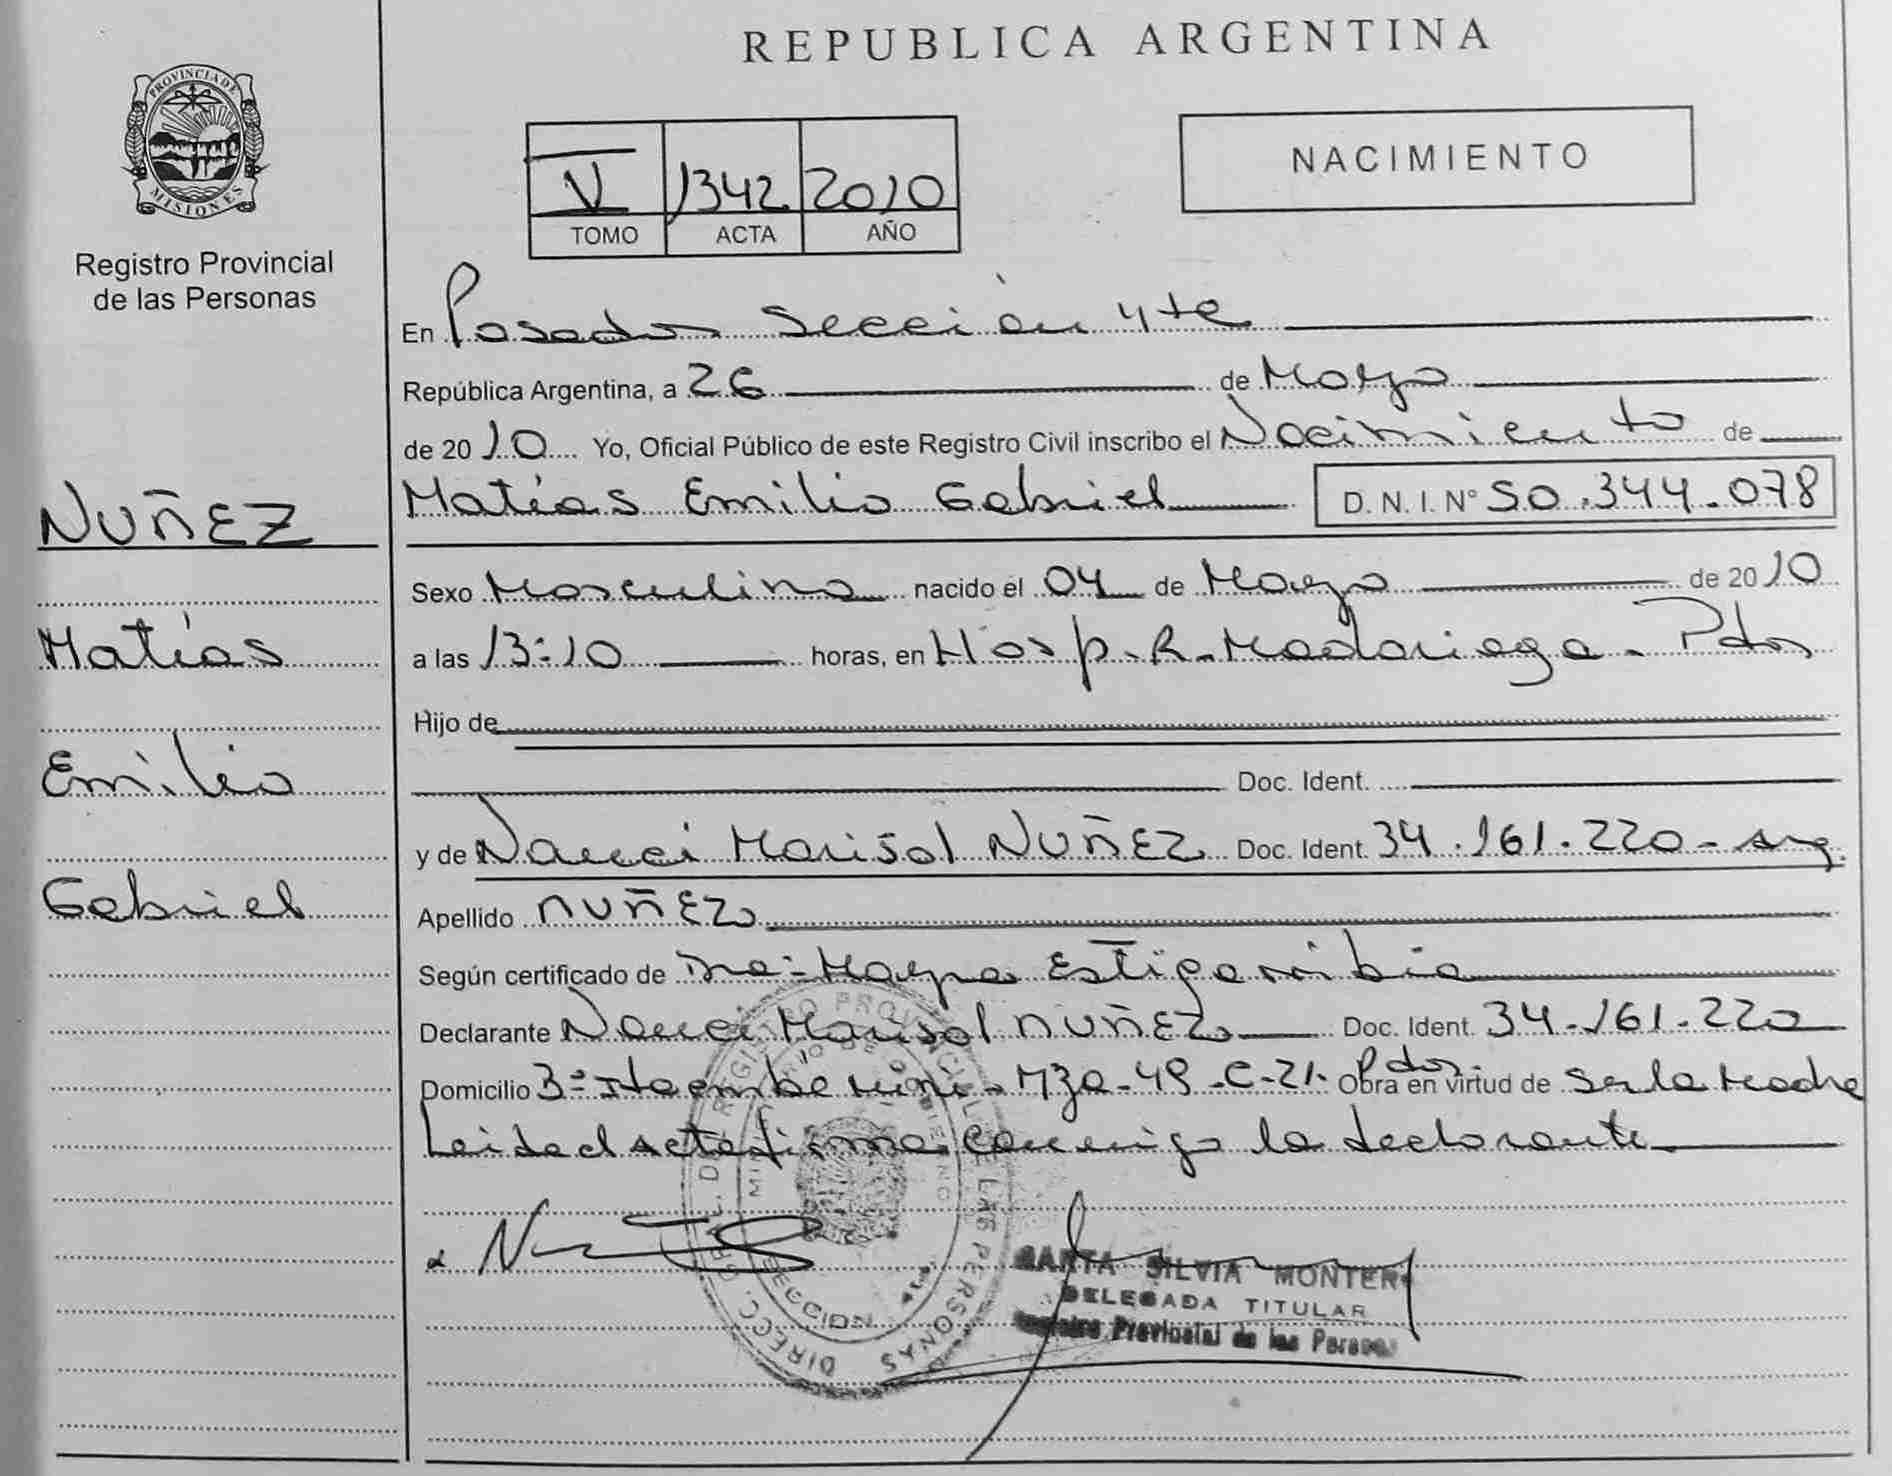 REPUBLICA ARGENTINA
PROVINCIA DE
MISIONES
Registro Provincial
de las Personas
NACIMIENTO
V 1342 2010
TOMO ACTA AÑO
En Posadas Sección 4ta
República Argentina, a 26 de Mayo
de 2010 Yo, Oficial Público de este Registro Civil inscribo el Nacimiento de
Matías Emilio Gabriel D. N. I. N° 50.344.078
NUÑEZ
Matías
Emilio
Gabriel
Sexo Masculino nacido el 04 de Mayo de 2010
a las 13:10 horas, en Hosp. R. Madariaga - Pdas
Hijo de
Doc. Ident.
y de Nanci Marisol NUÑEZ Doc. Ident. 34.161.220 - arg.
Apellido NUÑEZ
Según certificado de Dra. Mayra Estigarribia
Declarante Nanci Marisol NUÑEZ Doc. Ident. 34.161.220
Domicilio 3° Itaembe mini - Mza - 49 - C - 21. Pdas. Obra en virtud de Ser la Madre
Leida el acta firma conmigo la declarante
DIRECC. GRAL. DE REGISTRO PROVINCIAL DE LAS PERSONAS
MINISTERIO DE GOBIERNO
SECCION 4ta
MARTA SILVIA MONTER
DELEGADA TITULAR
Registro Provincial de las Personas